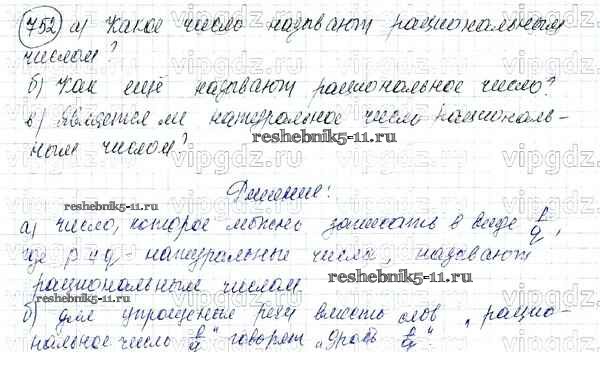 752 а) Какое число называют рациональным
числом?
б) Как ещё называют рациональное число?
в) Является ли натуральное число рациональ-
ным числом?
reshebnik5-11.ru
Решение:
reshebnik5-11.ru
а) число, которое можно записать в виде p/q,
где p и q - натуральные числа, называют
рациональным числом
reshebnik5-11.ru
б) для упрощения речи вместо слов „рацио-
нальное число p/q" говорят „дробь p/q"
vipgdz.com